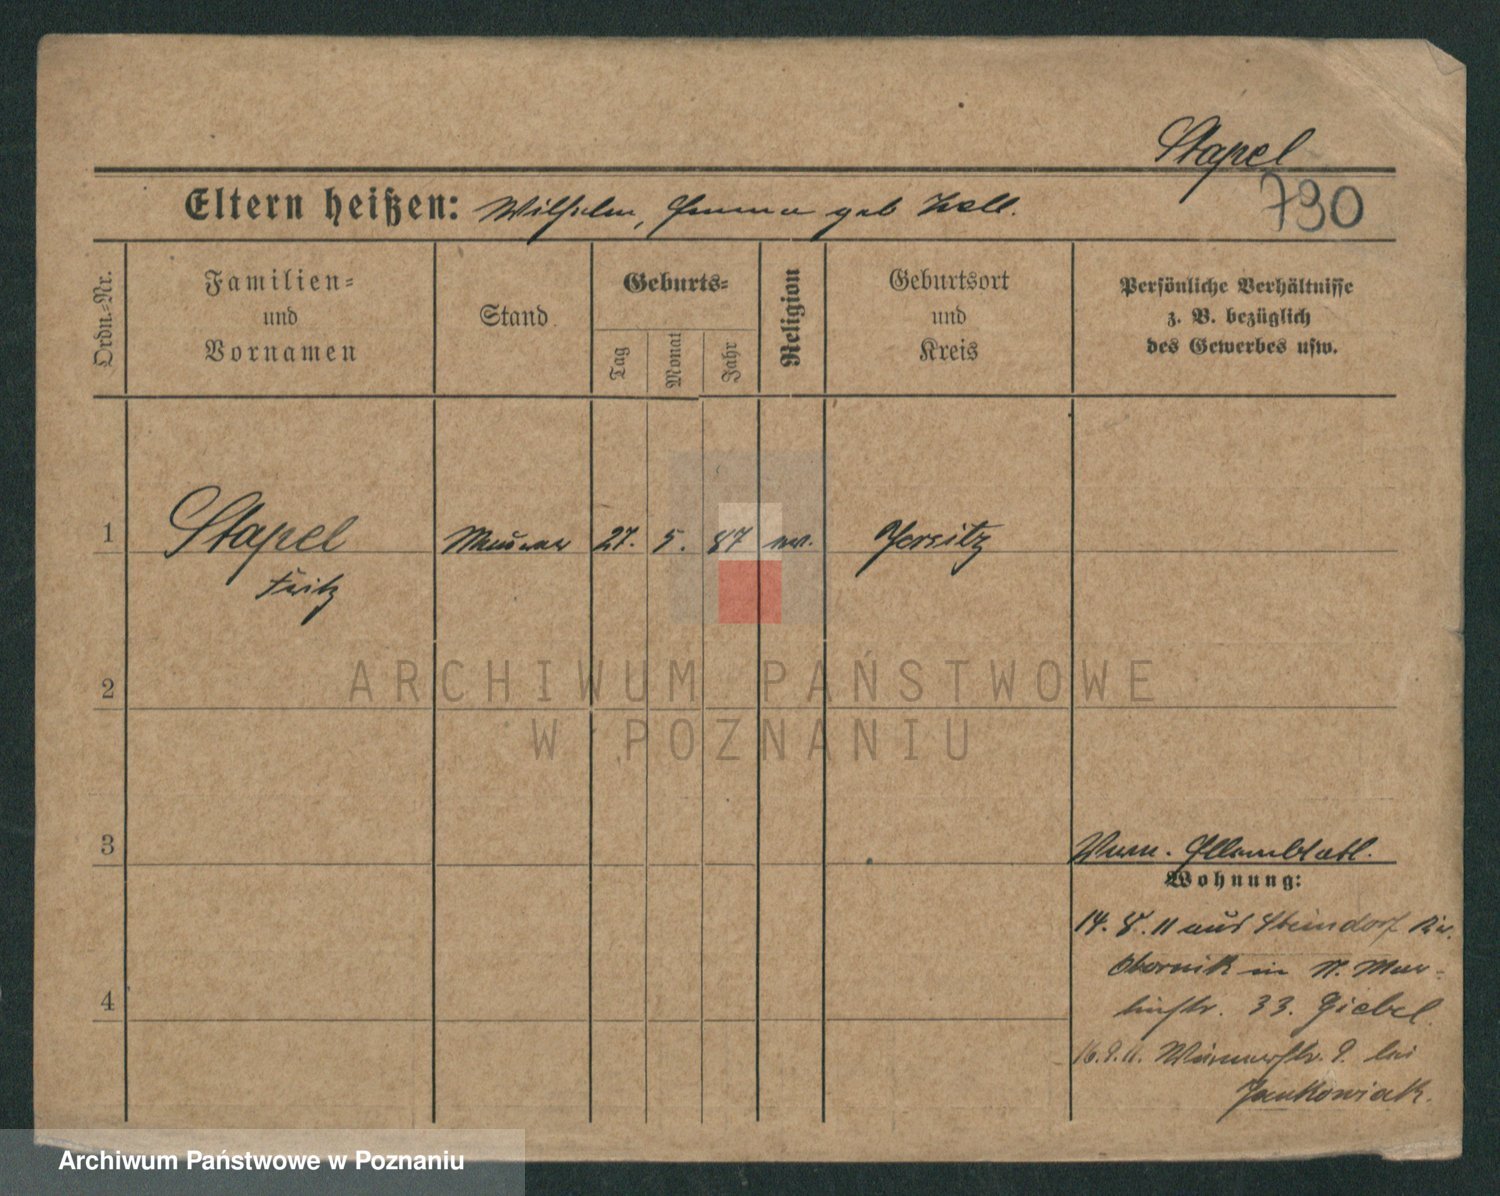 Stapel
790
Eltern heißen: Wilhelm, Emma geb
Ordn.=Nr.
Familien=
und
Vornamen
Stand
Geburts=
Tag
Monat
Jahr
Religion
Geburtsort
und
Kreis
Persönliche Verhältnisse
z. B. bezüglich
des Gewerbes usw.
1
Stapel
Maurer
27.
5.
87
ev.
Jersitz
Fritz
2
3
4
Elternblatt.
Wohnung:
14. 8. 11 aus Steindorf Kr.
Obornik in St. Mar=
tinstr. 33. Giebel.
16. 9. 11. 9. bei
Jankowiak.
ARCHIWUM PAŃSTWOWE
W POZNANIU
Archiwum Państwowe w Poznaniu